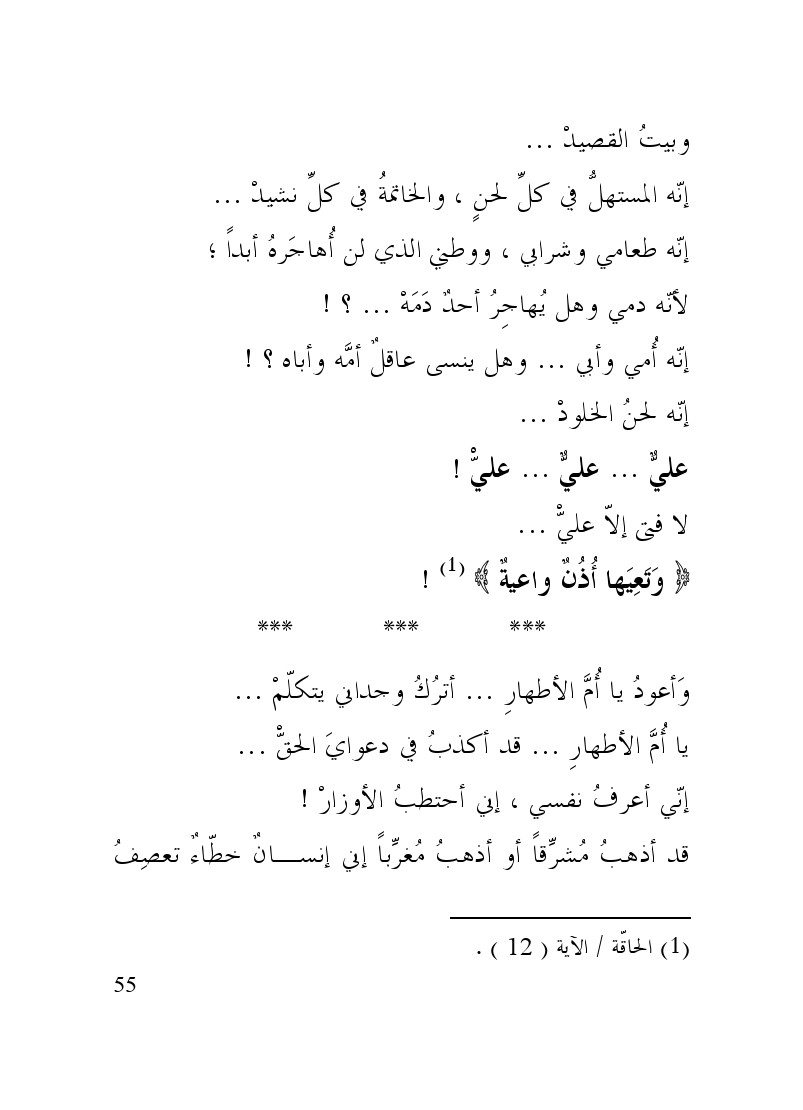 وبيتُ القصيدْ ...
إنّه المستهلُّ في كلِّ لحنٍ ، والخاتمةُ في كلِّ نشيدْ ...
إنّه طعامي وشرابي ، ووطني الذي لن أُهاجَرهُ أبداً ؛
لأنّه دمي وهل يُهاجِرُ أحدٌ دَمَهْ ... ؟ !
إنّه أُمي وأبي ... وهل ينسى عاقلٌ أمَّه وأباه ؟ !
إنّه لحنُ الخلودْ ...
عليٌّ ... عليٌّ ... عليّْ !
لا فتى إلاّ عليّْ ...
﴿ وَتَعِيَها أُذُنٌ واعيةٌ ﴾ (1) !
*** *** ***
وَأعودُ يا أُمَّ الأطهارِ ... أترُكُ وجداني يتكلّمْ ...
يا أُمَّ الأطهارِ ... قد أكذبُ في دعوايَ الحقّْ ...
إنّي أعرفُ نفسي ، إني أحتطبُ الأوزارْ !
قد أذهبُ مُشرِّقاً أو أذهبُ مُغرِّباً إني إنســـان��ٌ خطّاءٌ تعصِفُ
(1) الحاقّة / الآية ( 12 ) .
55